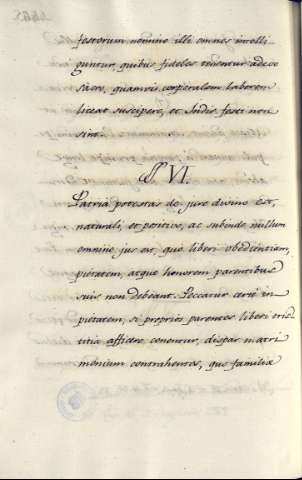 festorum nomine illi omnes intelli
guntur, quibus fideles tenentur adesse
Sacro, quamvis corporalem laborem
liceat suscipere, et Indis festi non
sint.
§ VI.
Patria potestas de jure divino est,
naturali, et positivo, ac subinde nullum
omnino jus est, quo liberi obedientiam,
pietatem, atque honorem parentibus
suis non debeant. Peccatur certe in
pietatem, si proprios parentes liberi
titia afficere conentur, dispar matri
monium contrahentes, quo familia